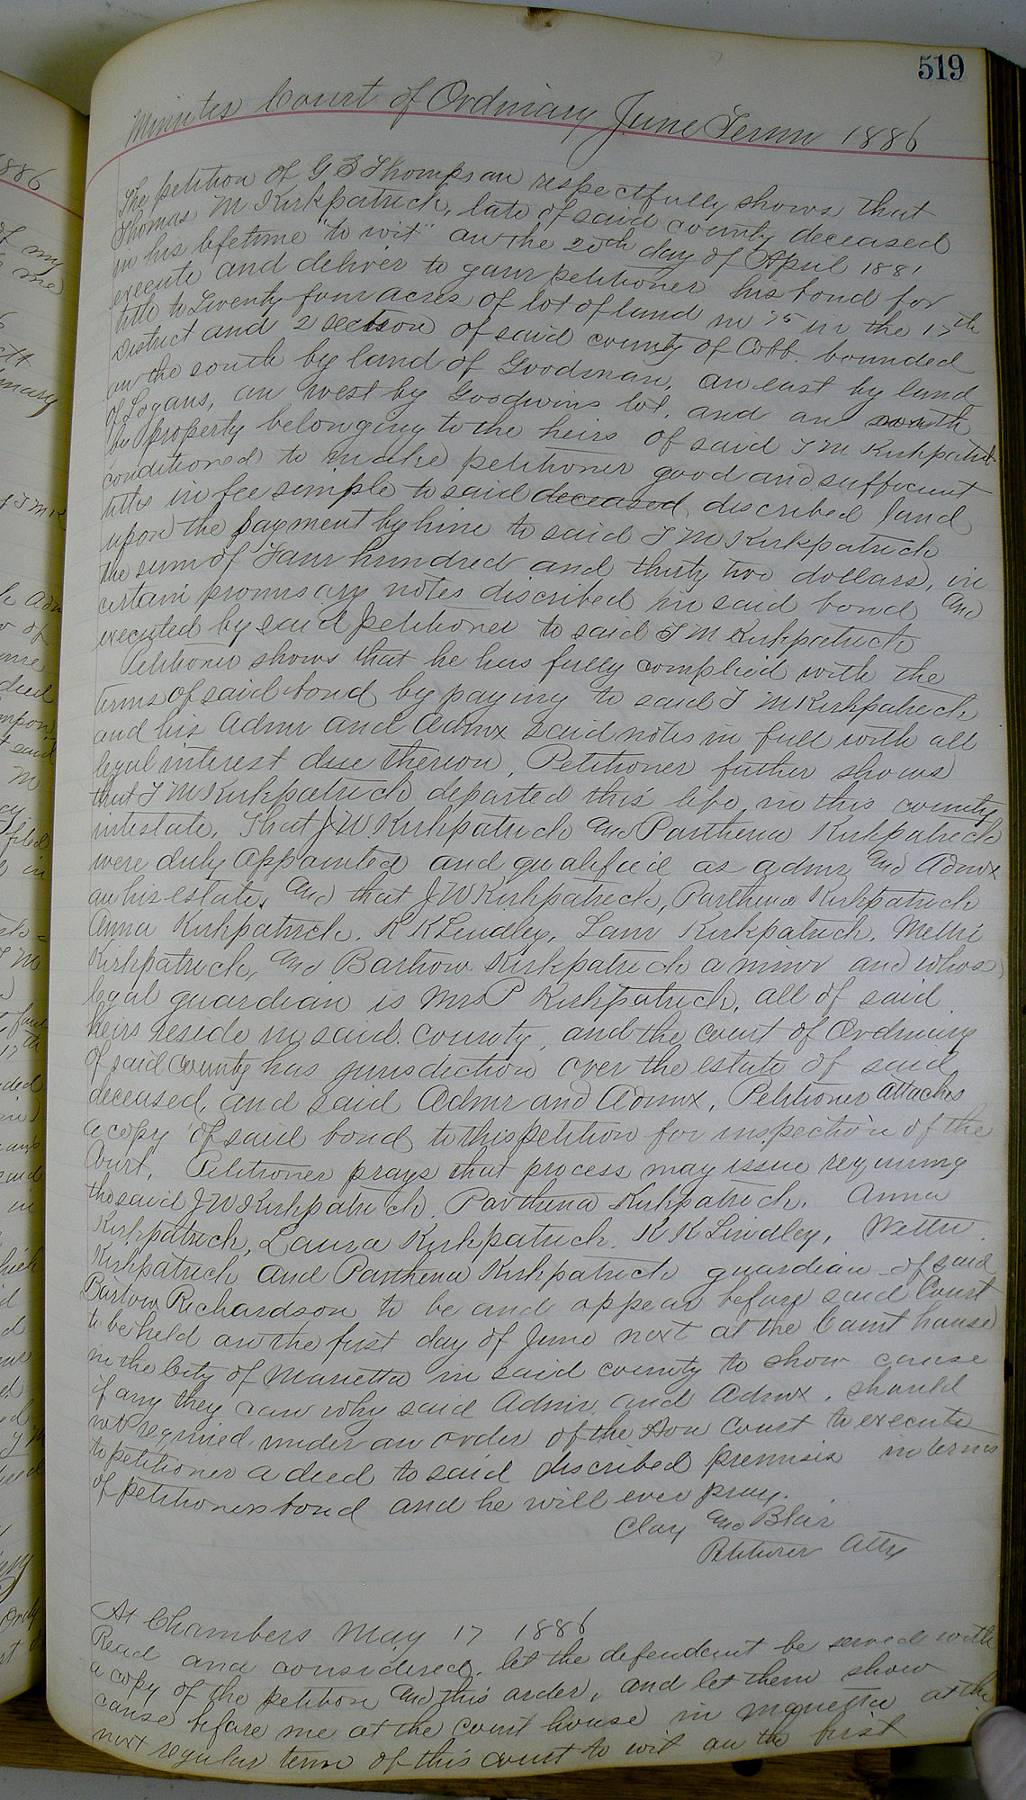 519
Minutes Court of Ordinary June Term 1886
The petition of G S Thompson respectfully shows that
Thomas M Kirkpatrick, late of said county deceased
in his lifetime "to wit" on the 20th day of April 1881
execute and deliver to your petitioner his bond for
title to Twenty four acres of lot of land no 75 in the 17th
District and 2 section of said county of Cobb. bounded
on the south by land of Goodman, on east by land
of Logans, on west by Goodwins lot. and on north
by property belonging to the heirs of said T M Kirkpatrick
conditioned to make petitioner good and sufficient
titles in fee simple to said deceased discribed land
upon the payment by him to said T M Kirkpatrick
the sum of Four hundred and thirty two dollars, in
certain promisary notes discribed in said bond and
executed by said petitioner to said T M Kirkpatrick
Petitioner shows that he has fully complied with the
terms of said bond by paying to said T M Kirkpatrick
and his Admr and Admx said notes in full with all
legal interest due therion, Petitioner futher shows
that T M Kirkpatrick departed this life in this county
intestate. That J W Kirkpatrick and Parthena Kirkpatrick
were duly appointed and qualified as admr and Admx
on his estate, and that J W Kirkpatrick, Parthena Kirkpatrick
Anna Kirkpatrick. K K Lindley, Laur Kirkpatrick.
Kirkpatrick, and Bartow Kirkpatrick a minor and whos
legal guardian is Mrs P Kirkpatrick, all of said
heirs reside in said county, and the court of Ordinary
of said County has jurisdiction over the estate of said
deceased, and said Admr and Admx. Petitioner attaches
a copy of said bond to this petition for inspection of the
Court. Petitioner prays that process may issue requiring
the said J W Kirkpatrick. Parthena Kirkpatrick. Anna
Kirkpatrick, Laura Kirkpatrick. K K Lindley,
Kirkpatrick and Parthena Kirkpatrick guardian of said
Bartow Richardson to be and appear before said Court
to be held on the first day of June next at the Court house
in the City of Marietta in said county to show cause
if any they can why said Admr, and Admx. should
not required under an order of the Hon Court to execute
to petitioner a deed to said discribed premises in terms
of petitioners bond and he will ever pray.
Clay and Blair
Petitioner Atty
At Chambers May 17 1886
Read and considered. let the defendent be served with
a copy of the petition and this order, and let them show
cause before me at the court house in Marietta at the
next regular term of this court to wit on the first